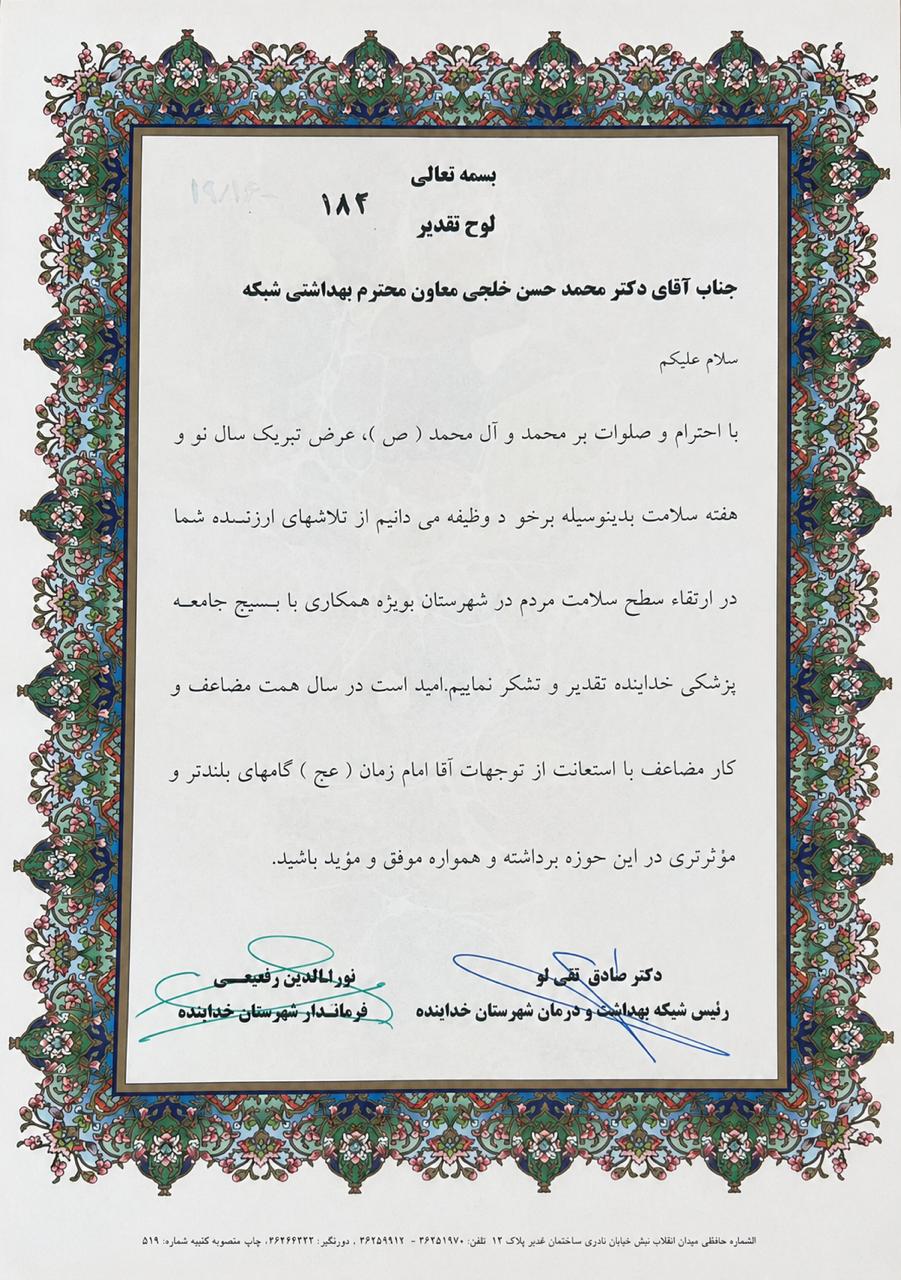 بسمه تعالی
۱۸۴
لوح تقدیر
جناب آقای دکتر محمد حسن خلجی معاون محترم بهداشتی شبکه
سلام علیکم
با احترام و صلوات بر محمد و آل محمد ( ص )، عرض تبریک سال نو و
هفته سلامت بدینوسیله برخو د وظیفه می دانیم از تلاشهای ارزنده شما
در ارتقاء سطح سلامت مردم در شهرستان بویژه همکاری با بسیج جامعه
پزشکی خداینده تقدیر و تشکر نماییم.امید است در سال همت مضاعف و
کار مضاعف با استعانت از توجهات آقا امام زمان ( عج ) گامهای بلندتر و
مؤثرتری در این حوزه برداشته و همواره موفق و مؤید باشید.
دکتر صادق تقی لو
رئیس شیکه بهداشت و درمان شهرستان خداینده
نورالدین رفعیعی
فرماندار شهرستان خداینده
الشماره حافظی میدان انقلاب نبش خیابان نادری ساختمان غدیر پلاک ۱۲ تلفن: ۳۶۲۵۱۹۷۰ - ۳۶۲۵۹۹۱۲ ، دورنگیر: ۳۶۲۶۶۲۲۲، چاپ منصوبه کتیبه شماره: ۵۱۹